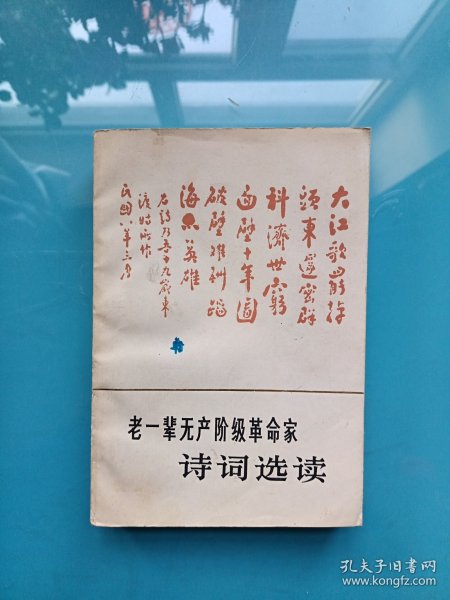 大江歌罷掉
頭東邃密群
科濟世窮
面壁十年圖
破壁難酬蹈
海亦英雄
右詩乃吾十九歲東
渡時所作
民国八年三月
老一辈无产阶级革命家
诗词选读
孔夫子旧书网
www.kongfz.com